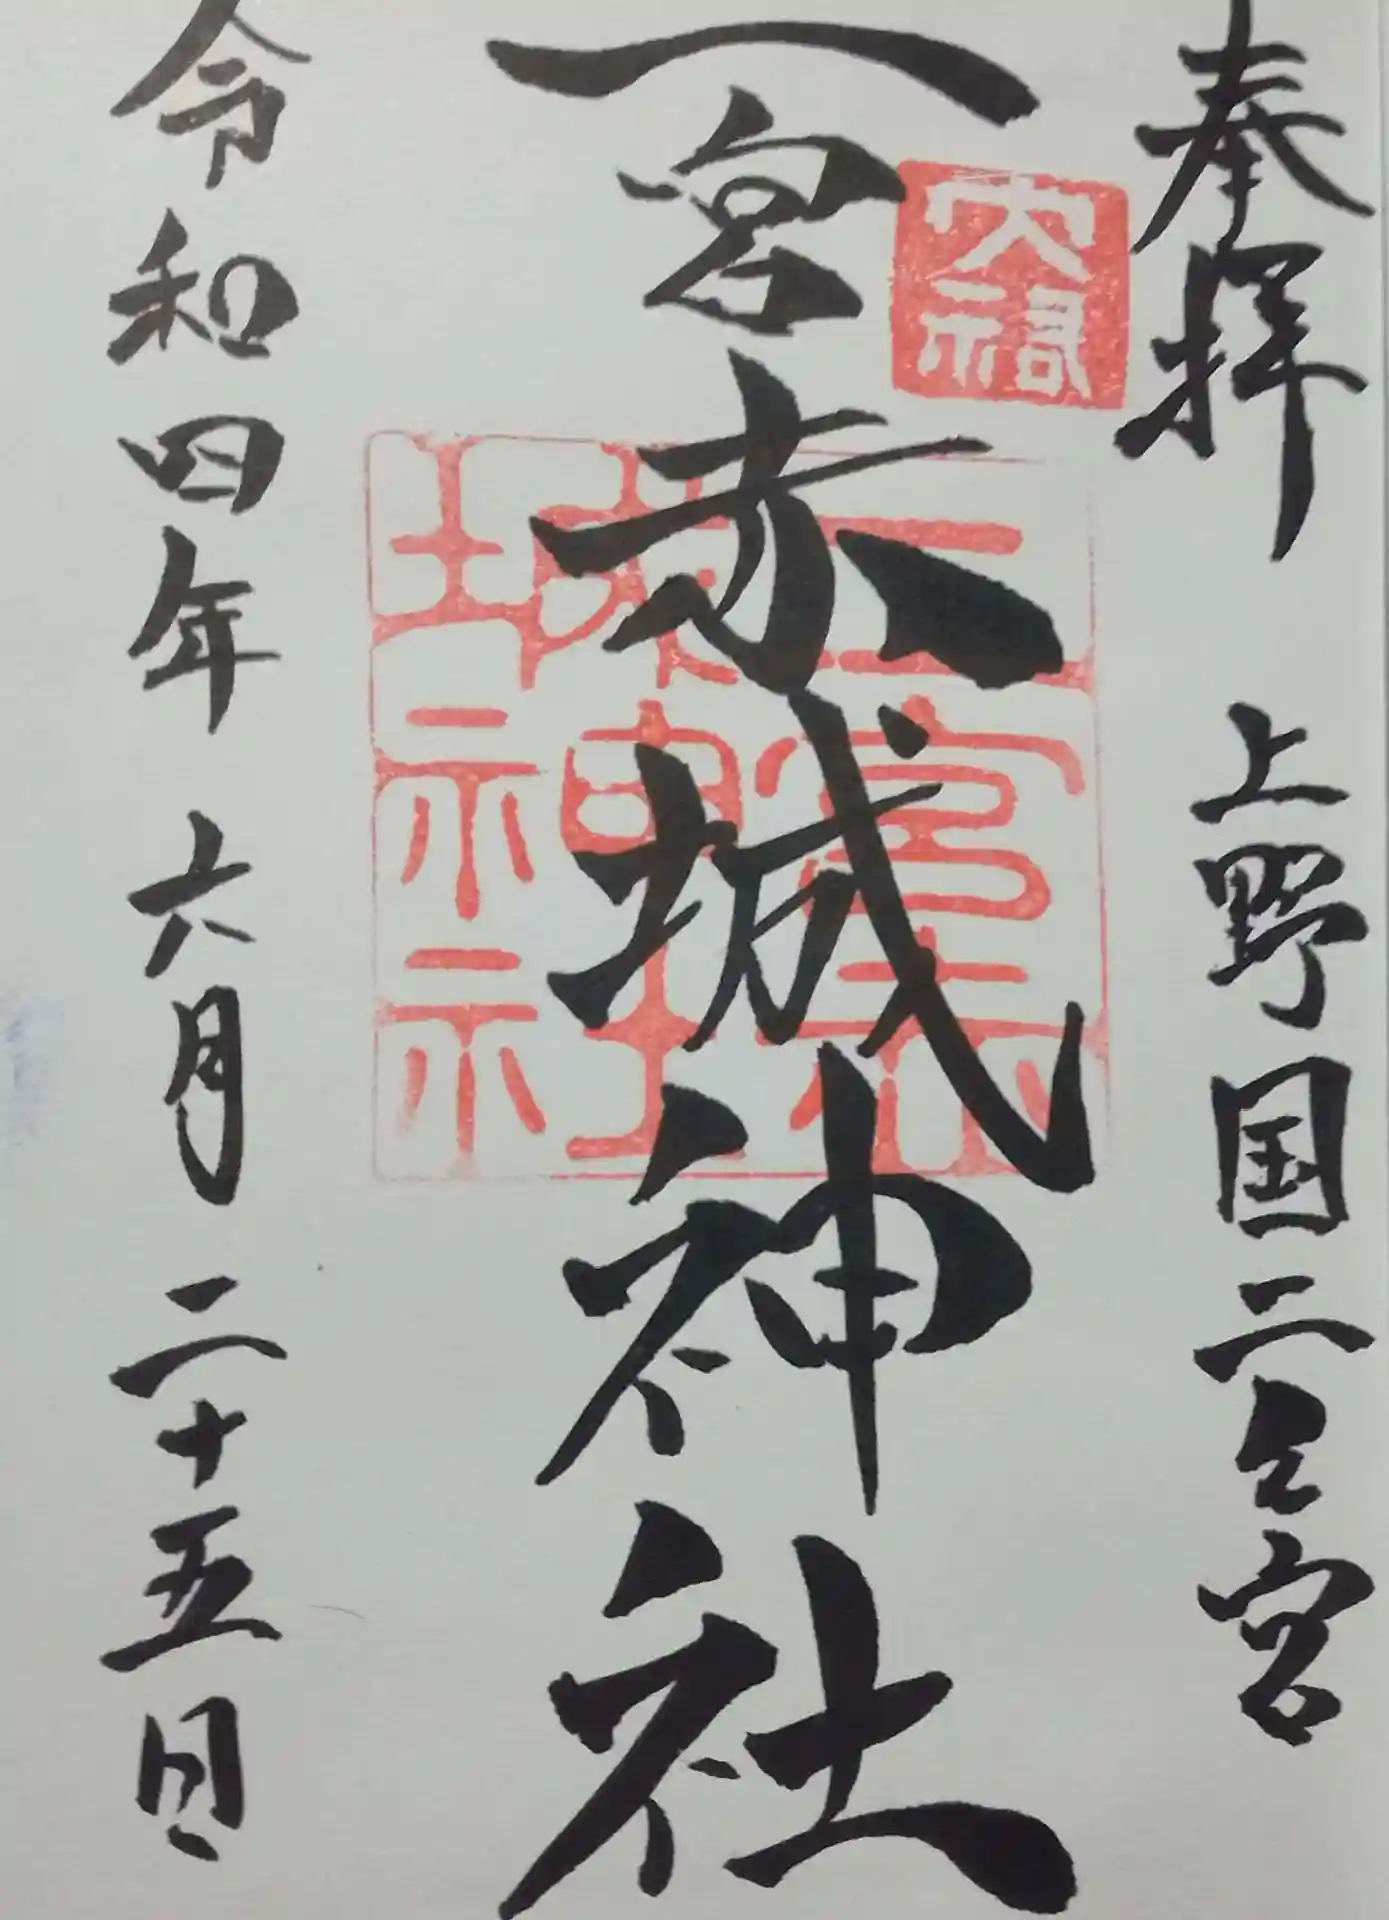 奉拝 上野国二之宮
二宮赤城神社
二宮赤城神社
令和四年 六月 二十五日